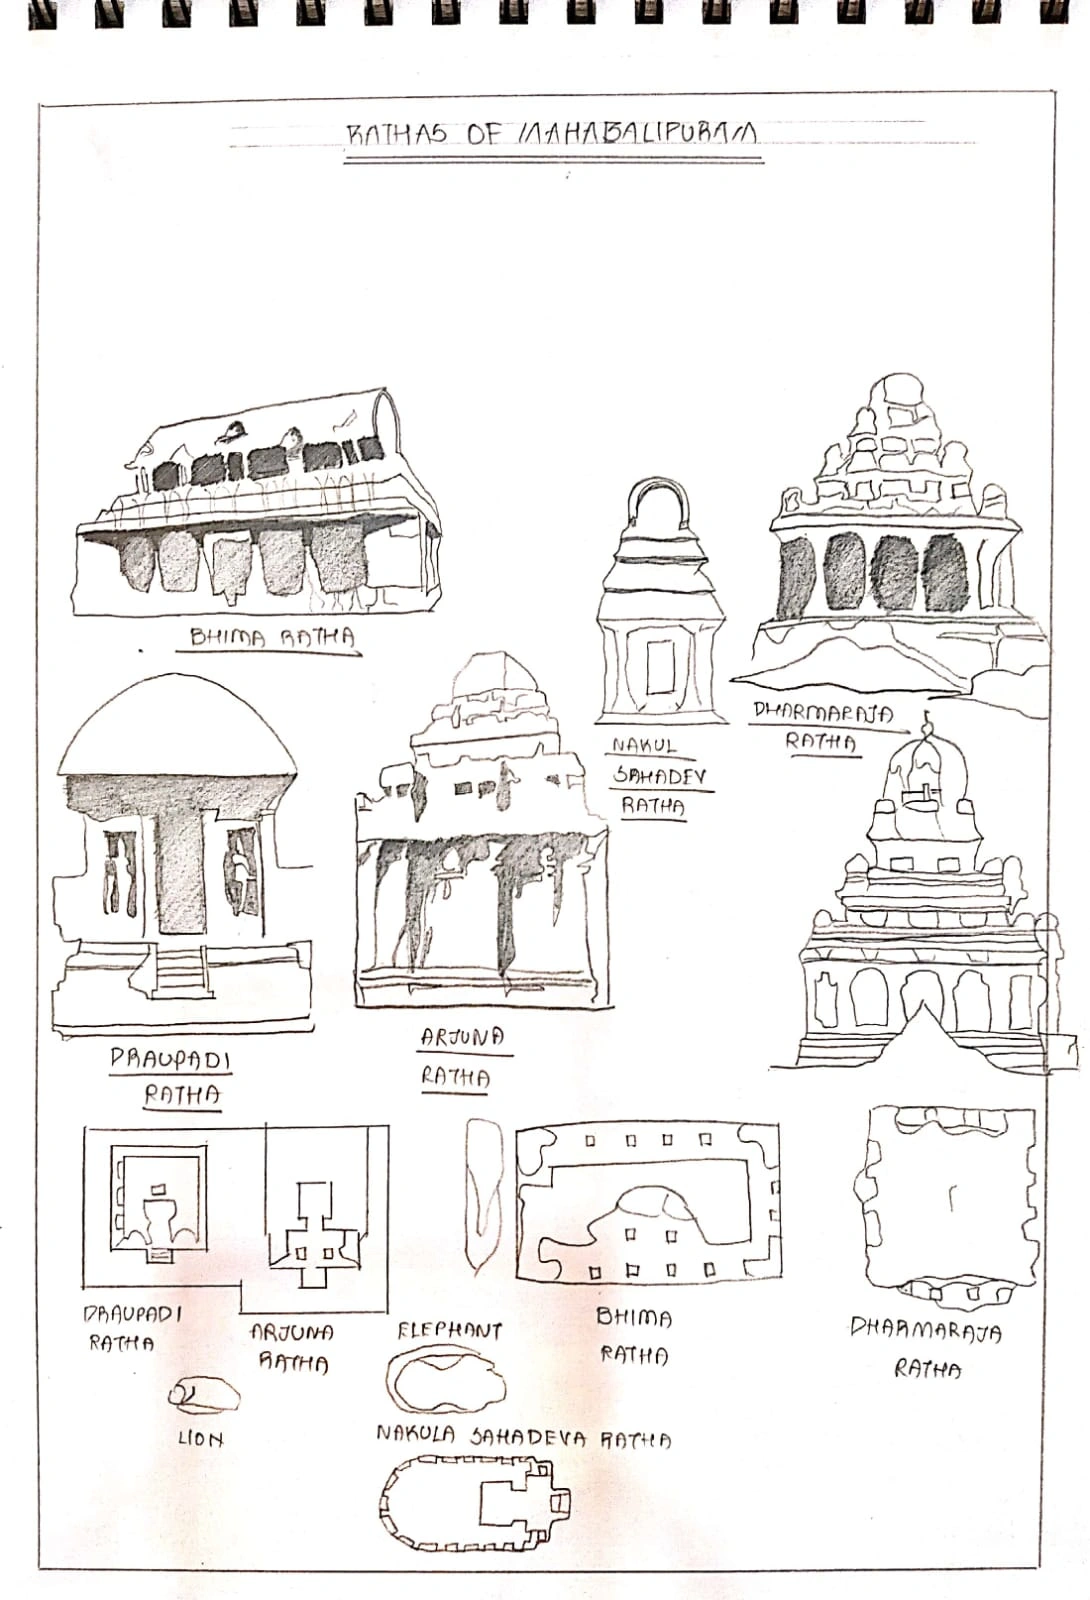 RATHAS OF MAHABALIPURAM
BHIMA RATHA
NAKUL
SAHADEV
RATHA
DHARMARAJA
RATHA
DRAUPADI
RATHA
ARJUNA
RATHA
DRAUPADI
RATHA
ARJUNA
RATHA
ELEPHANT
BHIMA
RATHA
DHARMARAJA
RATHA
LION
NAKULA SAHADEVA RATHA